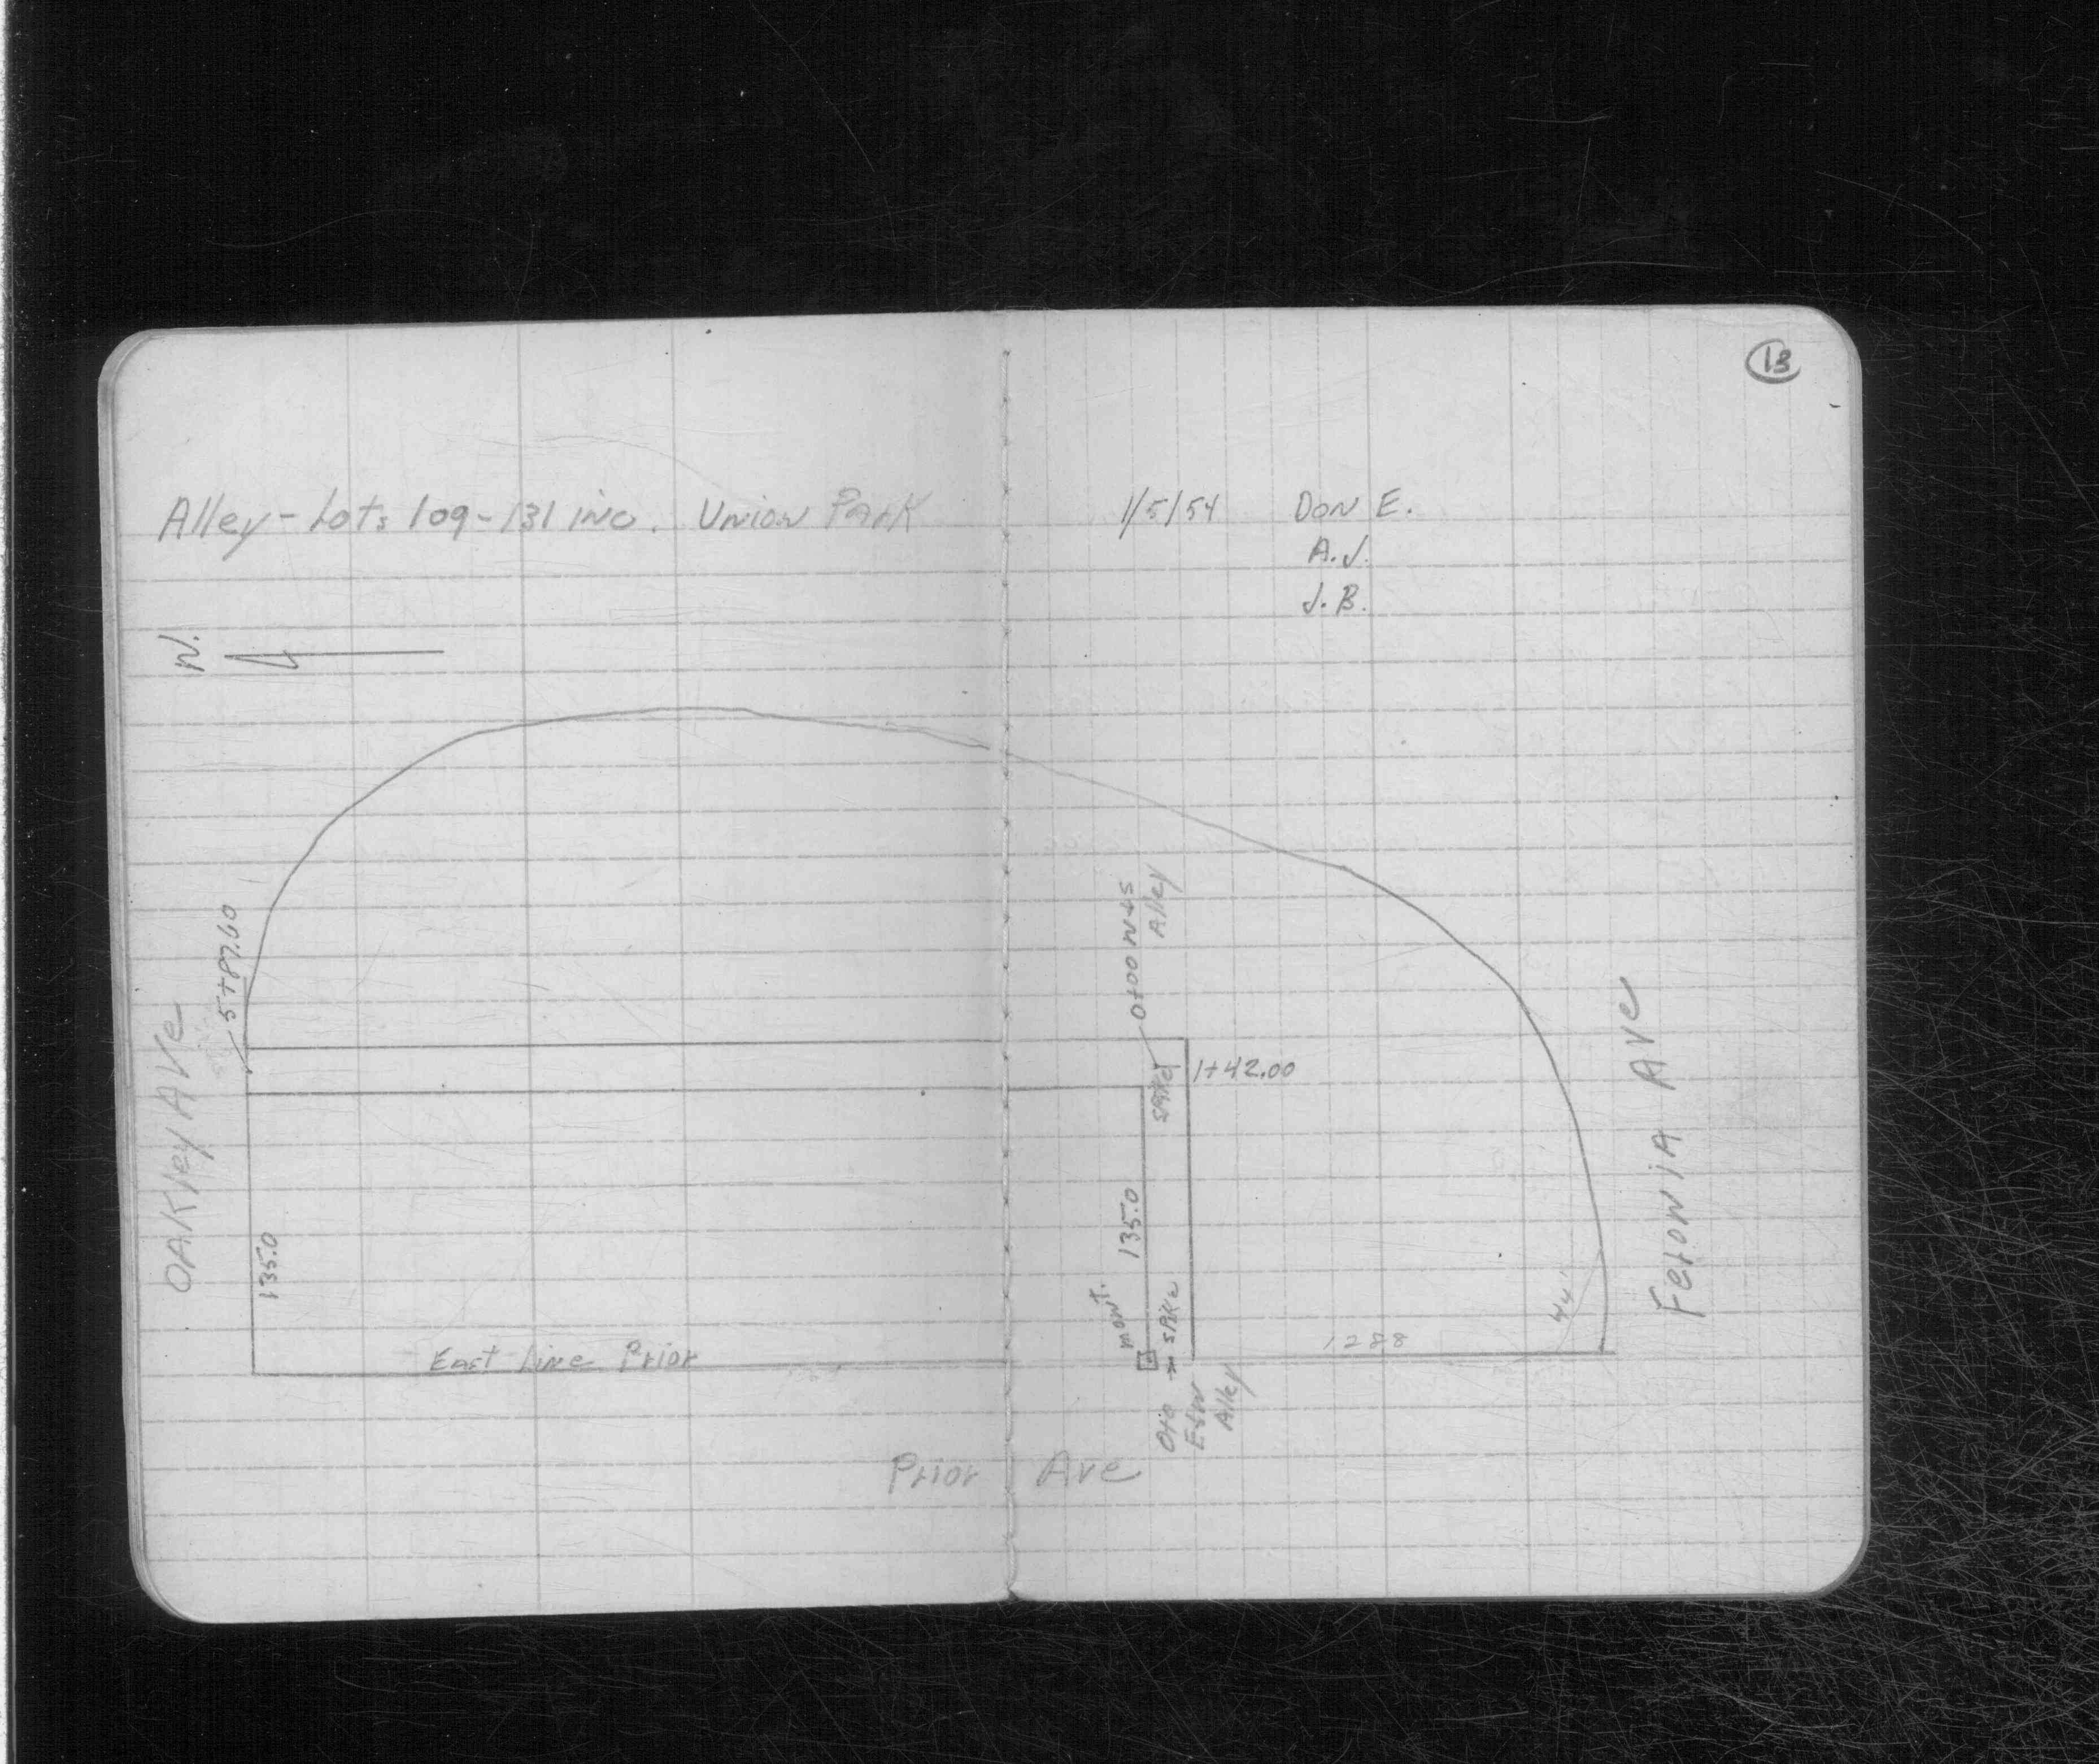 13
Alley - Lots 109-131 inc. Union Park
1/5/54 Don E.
A.J.
J.B.
N.
5+87.60
Oakley Ave
0+00 N+S
Alley
Spike
1+42.00
135.0
135.0
mont.
Spike
East Line Prior
1288
44'
Feronia Ave
0+0
E+W
Alley
Prior Ave